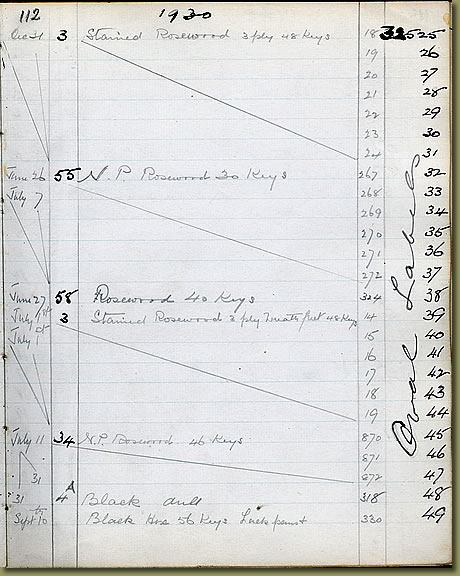 112 1930
3 Stained Rosewood 3 ply 48 Keys 18 32525
19 26
20 27
21 28
22 29
23 30
24 31
June 26 55 N.P. Rosewood 30 Keys 267 32
July 7 268 33
269 34
270 35
271 36
272 37
June 27 58 Rosewood 40 Keys 324 38
July 1st 3 Stained Rosewood 3 ply fret 48 Keys 14 39
July 1st 15 40
16 41
17 42
18 43
19 44
July 11 34 N.P. Rosewood 46 Keys 870 45
871 46
31 872 47
31 4A Black dull 318 48
Sept 10 Black 56 Keys 330 49
Oval Labels